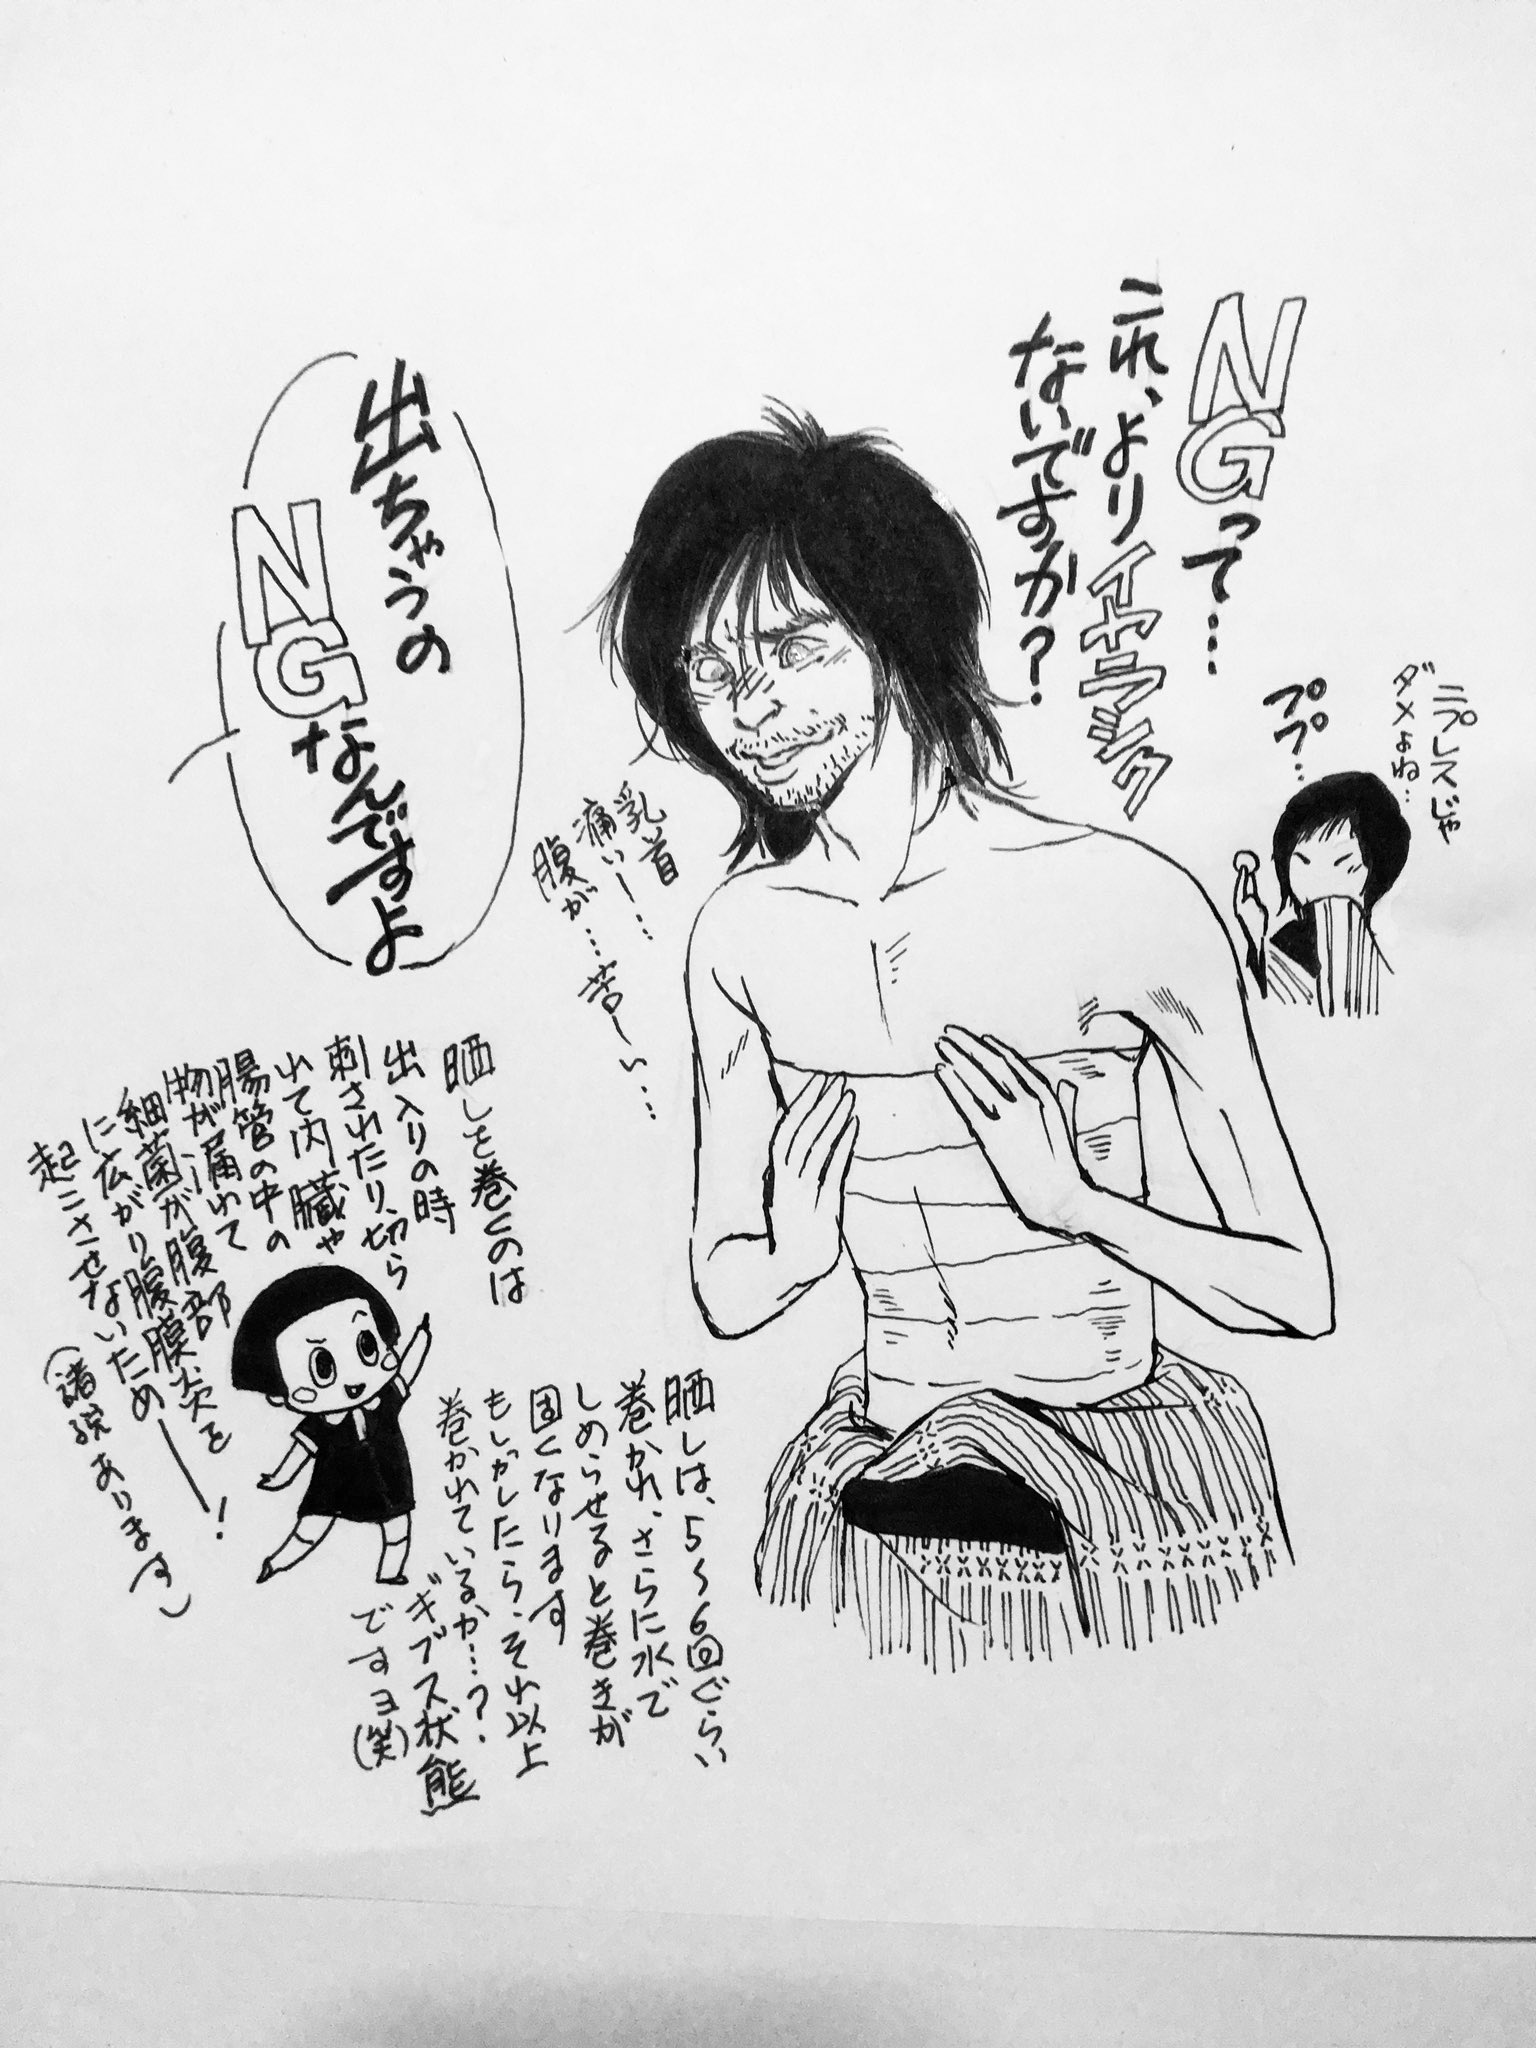 NGって…
これ、よりイヤラシク
ないですか?
ニプレスじゃ
ダメよね…
ププ…
出ちゃうの
NGなんですよ
乳首
痛いー…
腹が…苦しい…
晒しを巻くのは
出入りの時
刺されたり、切ら
れて内臓や
腸管の中の
物が漏れて
細菌が腹部
に広がり腹膜炎を
起こさせないためー!
(諸説あります)
晒しは、5〜6回ぐらい
巻かれ、さらに水で
しめらせると巻きが
固くなります
もしかしたら、それ以上
巻かれているか…?
ギブス状態
ですヨ(笑)